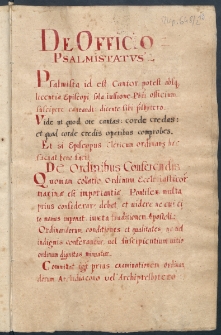 DE OFFICIO
PSALMISTATVS
Psalmista id est Cantor potest absq
licentia Episcopi sola iussione Pbri officium
suscipere cantandi dicente sibi pisbytero.
Vide ut quod ore cantas: corde credas:
et quod corde credis operibus comprobes.
Et si Episcopus clericum ordinans
faciat hoc
DE Ordinibus Conferendis
Quoniam colatio ordinum Ecclesiasticor
maxime est importantie Pontifex multa
prius considerare debet et videre ne cui ci
to manus imponat iuxta traditionem Apostoli:
Ordinandorum conditiones et qualitates ne ad
indignos conferantur, vel suscipientium
ordinum dignitas minuatur.
Committat igitur prius examinationem ordinan
dorum Archidiacono vel Archipresbytero